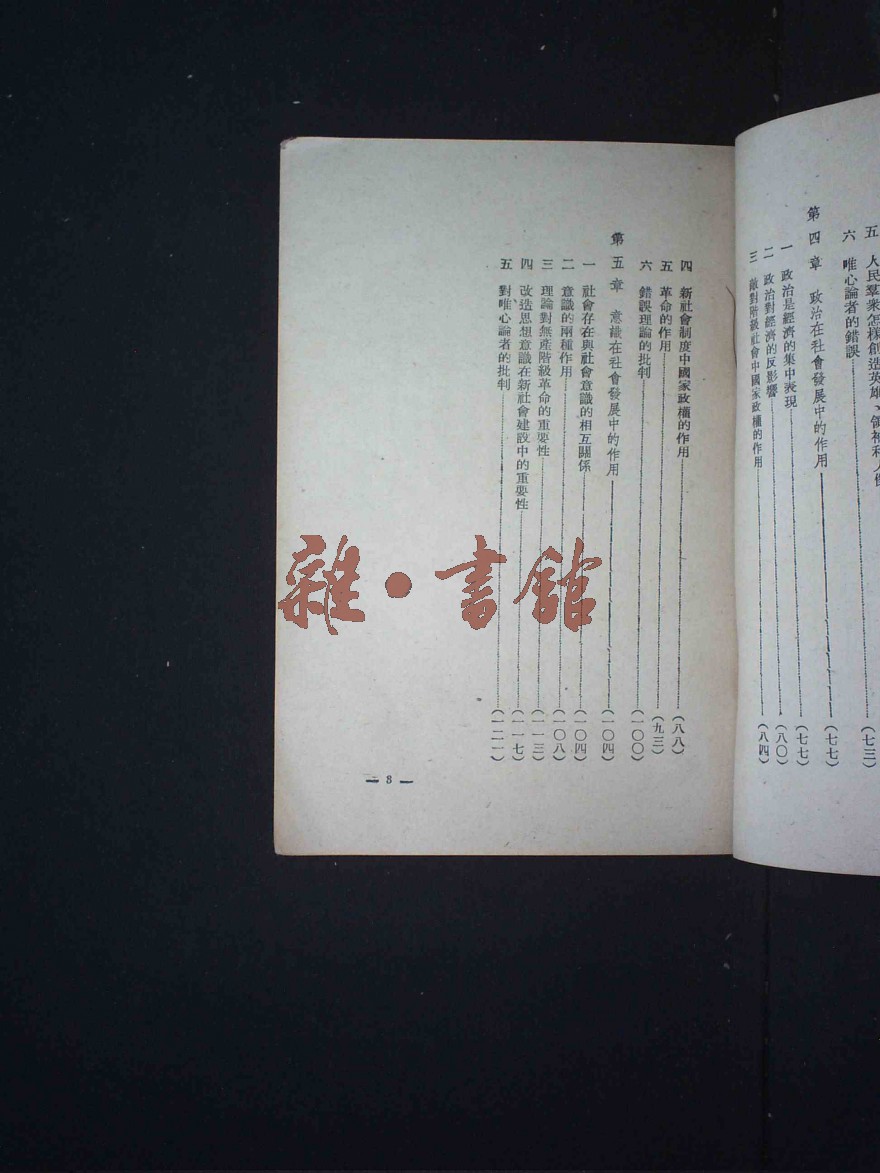 五 人民羣衆怎樣創造英雄、領袖和人
六 唯心論者的錯誤(七三)
第四章 政治在社會發展中的作用(七七)
一 政治是經濟的集中表現(七七)
二 政治對經濟的反影響(八〇)
三 敵對階級社會中國家政權的作用(八四)
四 新社會制度中國家政權的作用(八八)
五 革命的作用(九三)
六 錯誤理論的批判(一〇〇)
第五章 意識在社會發展中的作用(一〇四)
一 社會存在與社會意識的相互關係(一〇四)
二 意識的兩種作用(一〇八)
三 理論對無產階級革命的重要性(一一三)
四 改造思想意識在新社會建設中的重要性(一一七)
五 對唯心論者的批判(一二一)
— 3 —
雜·書館